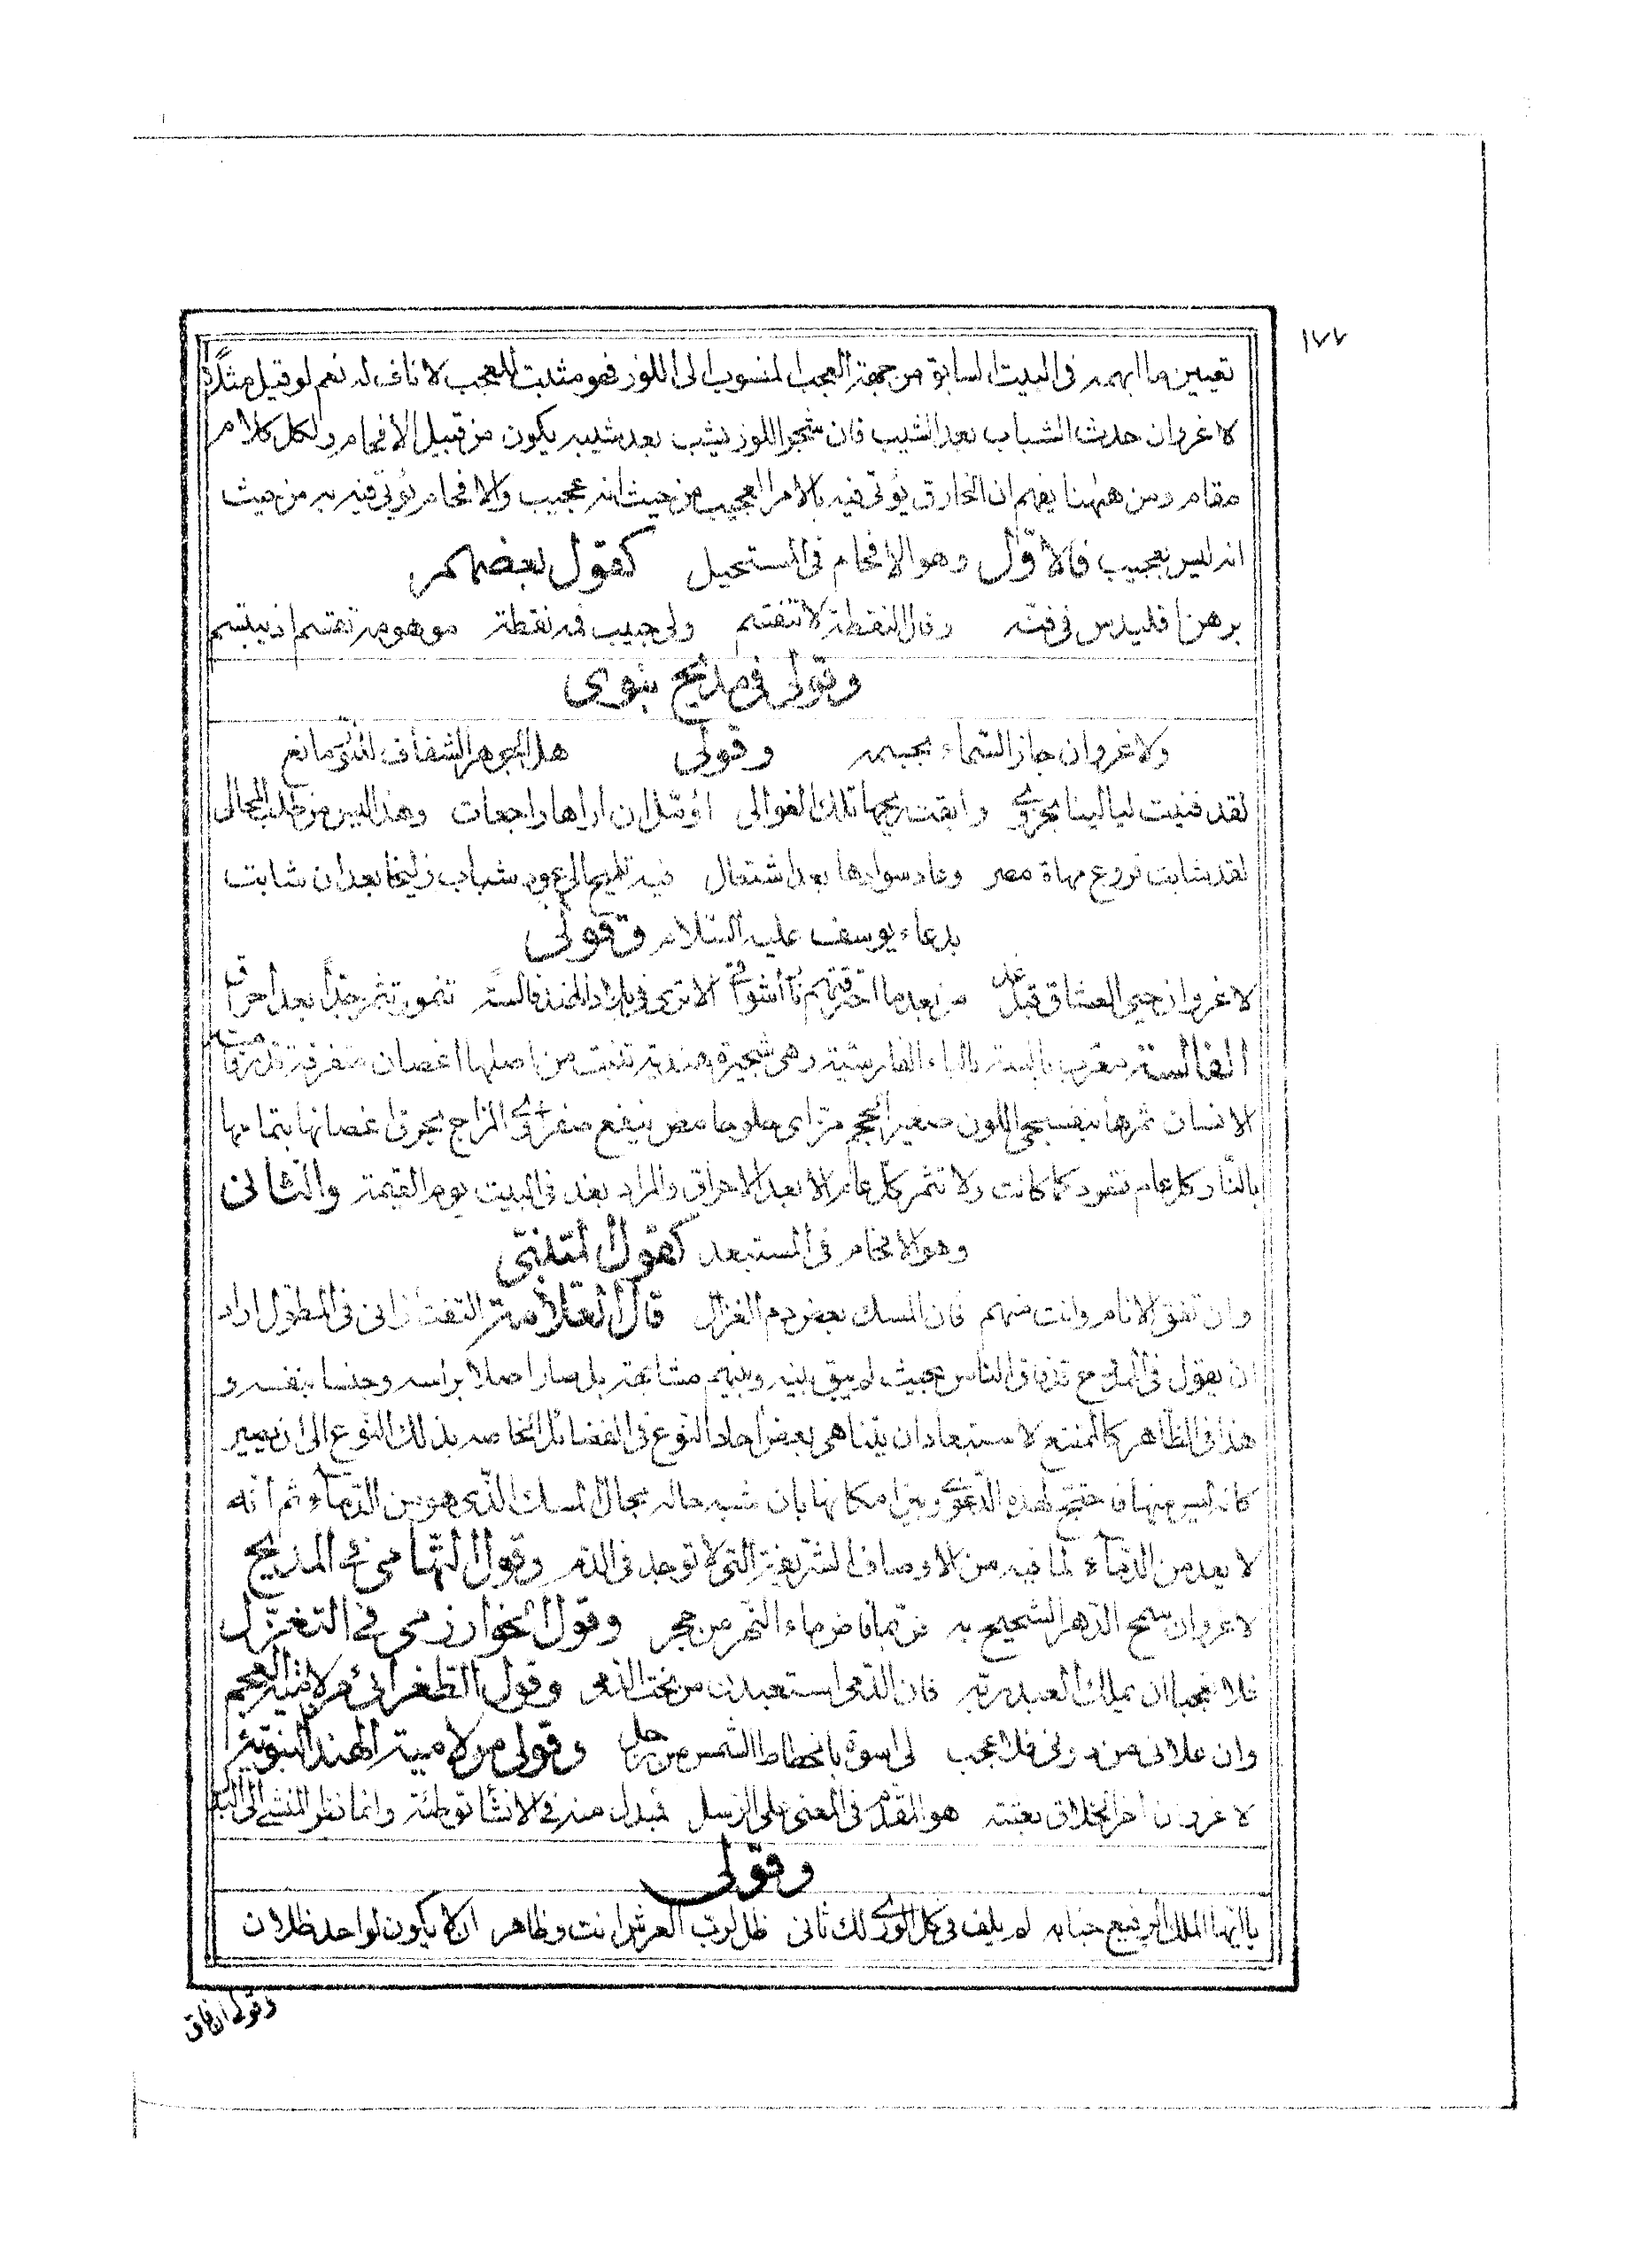 ١٧٧
تعيين ما ابهمه فى البيت السابق من جهة العجب المنسوب الى اللوز فهو مثبت للعجب لا ناف له نعم لو قيل مثلاً
لا غروان حدث الشباب بعد الشيب فان شجر اللوز يشب بعد شيبه يكون من قبيل الافحام ولكل كلام
مقام ومن ههنا يفهم ان الخارق يؤتى فيه بالامر العجيب من حيث انه عجيب والافحام يؤتى فيه به من حيث
انه ليس بعجيب فالاوّل وهو الافحام فى المستحيل كقول بعضهم
برهن اقليدس فى فنّه وقال النقطة لا تنقسم ولى حبيب فمه نقطة موهومة تنقسم اذ يبتسم
وقولى فى مديح نبوى
ولا غروان جاز السّماء بجسمه وقولى هل الجوهر الشفاف للنّور مانع
لقد فنيت ليالينا بحزوى وابقت ريحها تلك الغوالى اؤمّل ان اراها راجعات وهذا ليس من طلب المحال
لقد شابت فروع مهاة مصر وعاد سوادها بعد اشتعال فيه تلميح الى عود شباب زليخا بعد ان شابت
بدعاء يوسف عليه السّلام وقولى
لا غروان حيى العشاق قبل غد من بعد ما احرقتهم نار اشواق الا ترى فى بلاد الهند فالسة تنمو وتثمر جدّاً بعد احراق
الفالسة معرب پالسة بالباء الفارسيّة وهى شجيرة هندية تنبت من اصلها اغصان متفرقة قدر قامة
الانسان ثمرها بنفسجى اللون صغير الحجم مزّ اى حلو حامض ينفع صفراوى المزاج يحرق اغصانها بتمامها
بالنّار كل عام فتعود كما كانت ولا تثمر كل عام الا بعد الاحراق والمراد بغد فى البيت يوم القيمة والثّانى
وهو الافحام فى المستبعد كقول المتنبّى
وان تفق الانام وانت منهم فان المسك بعض دم الغزال قال العلّامة التفتازانى فى المطوّل اراد
ان يقول فى الممدوح قد فاق الناس بحيث لم يبق بينه وبينهم مشابهة بل صار اصلا براسه وجنسا بنفسه و
هذا فى الظّاهر كالممتنع لاستبعاد ان يتناهى بعض آحاد النّوع فى الفضائل الخاصه بذلك النّوع الى ان يصير
كانه ليس منها فاحتجّ لهذه الدّعوى وبيّن امكانها بان شبه حاله بحال المسك الّذى هو من الدّماء ثم انّه
لا يعد من الدّماء لما فيه من الاوصاف الشّريفة التى لا توجد فى الدّم وقول التّهامى فى المديح
لا غروان سمح الدّهر الشّحيح به فربّما فاض ماء النّهر من حجر وقول الخوارزمى فى التغزّل
فلا عجبا ان يملك العبد ربّه فان الدّمى استعبدن من نحت الدّمى وقول الطّغرائى من لامية العجم
وان علانى من دونى فلا عجب لى اسوة بانحطاط الشّمس عن زحل وقولى من لامية الهند النّبويّة
لا غروان آخر الخلاق بعثته هو المقدّم فى المعنى على الرّسل مبدل منه فى الانشا توطئة وانما نظر المنشى الى البدل
وقولى
يا ايّها الملك الرفيع جنابه لم يلف فى كل الورى لك ثانى ظل لرب العرش انت وظاهر ان لا يكون لواحد ظلان
وقول ارفاق